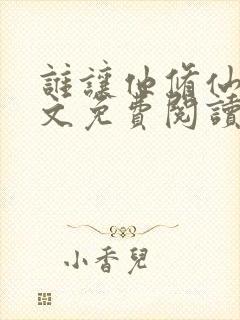 誰讓他脩仙
文免費閱讀
小香兒